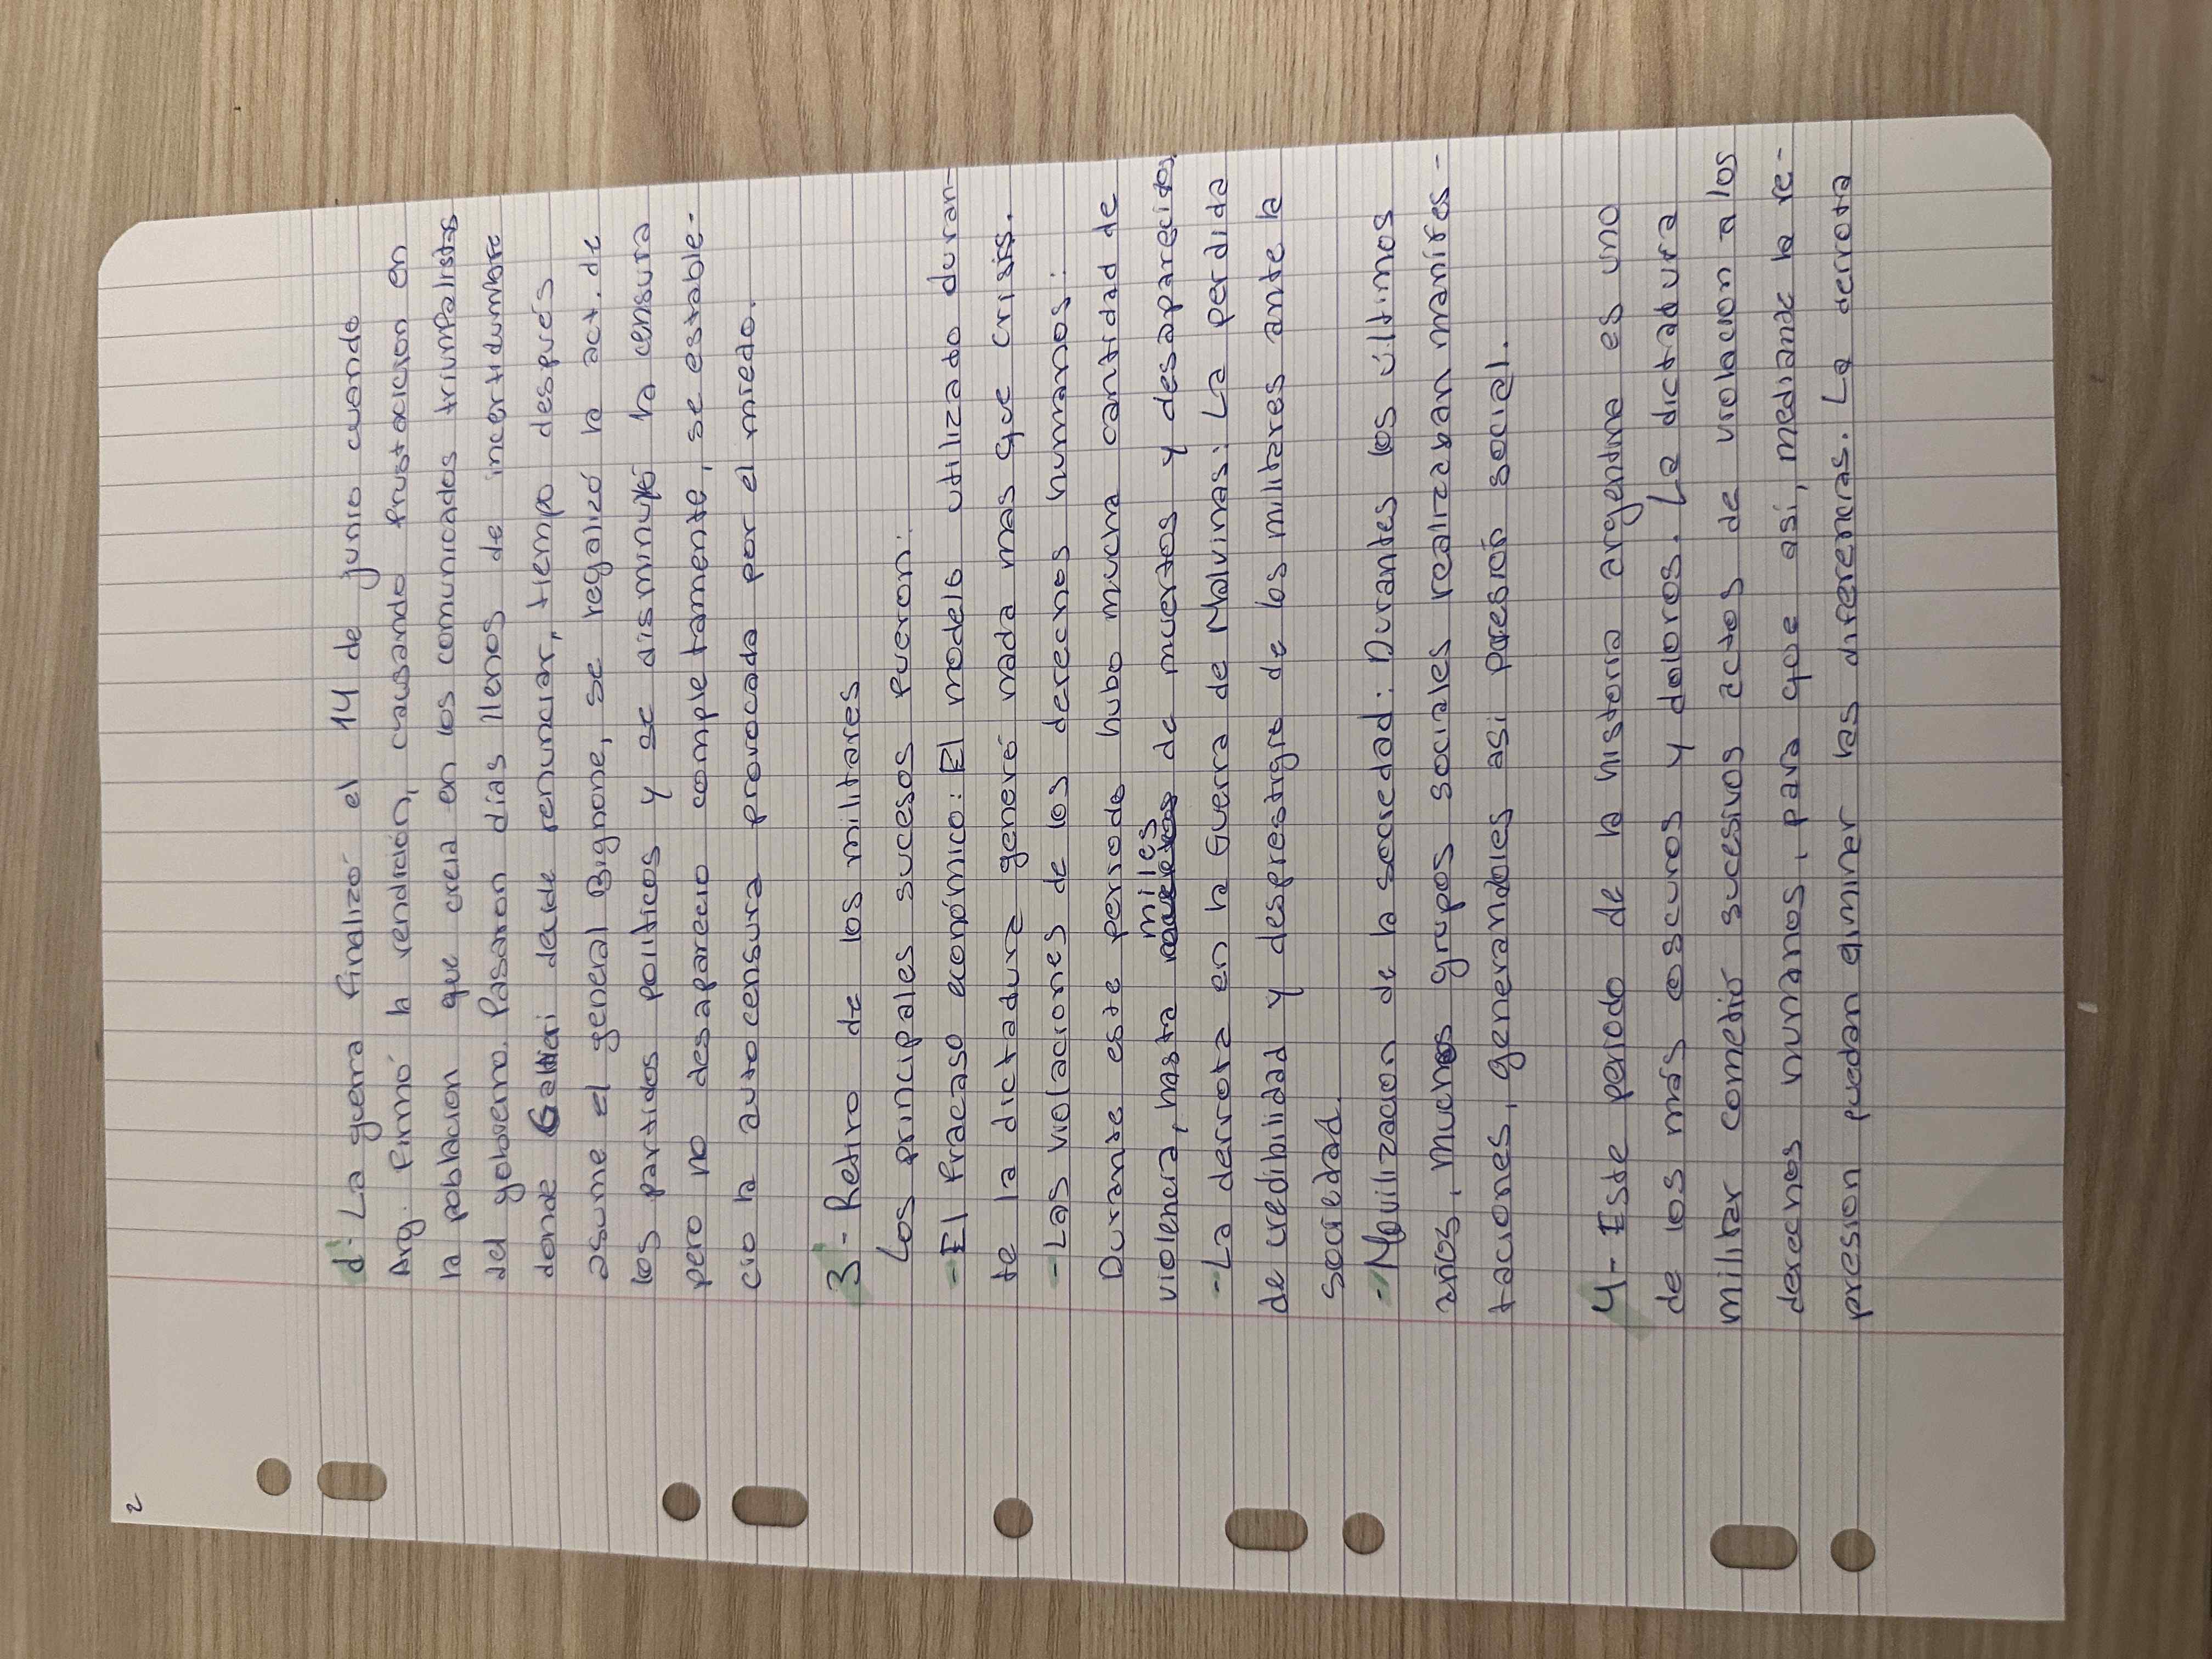 2
d- La guerra finalizó el 14 de junio cuando
Arg. firmó la rendición, causando frustacion en
la poblacion que creia en los comunicados triumfalistas
del gobierno. Pasaron días llenos de incertidumbre
donde Galtieri decide renunciar, tiempo después
asume el general Bignone, se regalizó la act. de
los partidos politicos y se disminuyó la censura
pero no desaparecio completamente, se estable-
cio la autocensura provocada por el miedo.
3- Retiro de los militares
Los principales sucesos fueron:
- El fracaso económico: El modelo utilizado duran-
te la dictadura generó nada mas que crisis.
- Las violaciones de los derechos humanos:
Durante este periodo hubo mucha cantidad de
violencia, hasta miles de muertos y desaparecidos.
- La derrota en la Guerra de Malvinas: La perdida
de credibilidad y desprestigio de los militares ante la
sociedad.
- Movilizacion de la sociedad: Durantes los últimos
años, muchos grupos sociales realizaban manifes-
taciones, generandoles asi presión social.
4- Este periodo de la historia argentina es uno
de los más oscuros y doloros. La dictadura
militar cometio sucesivos actos de violacion a los
derechos humanos, para que asi, mediante la re-
presion puedan eliminar las diferencias. La derrota